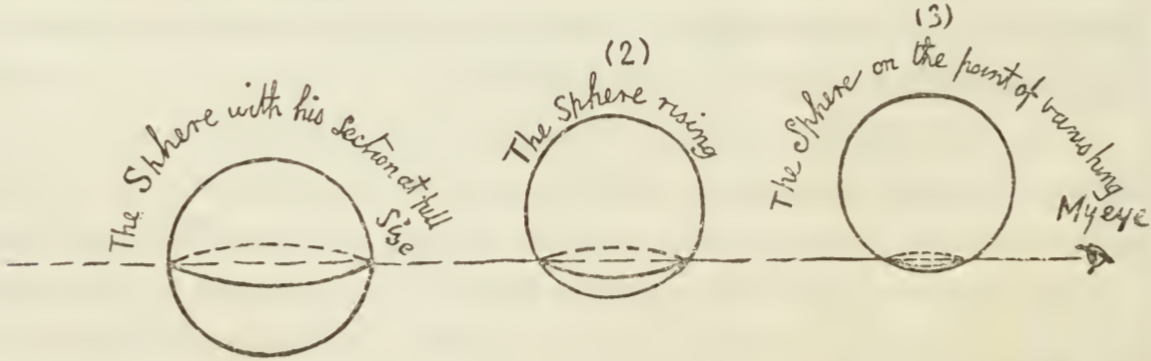 The Sphere with his section at full
size
(2)
The Sphere rising
(3)
The Sphere on the point of vanishing
My eye